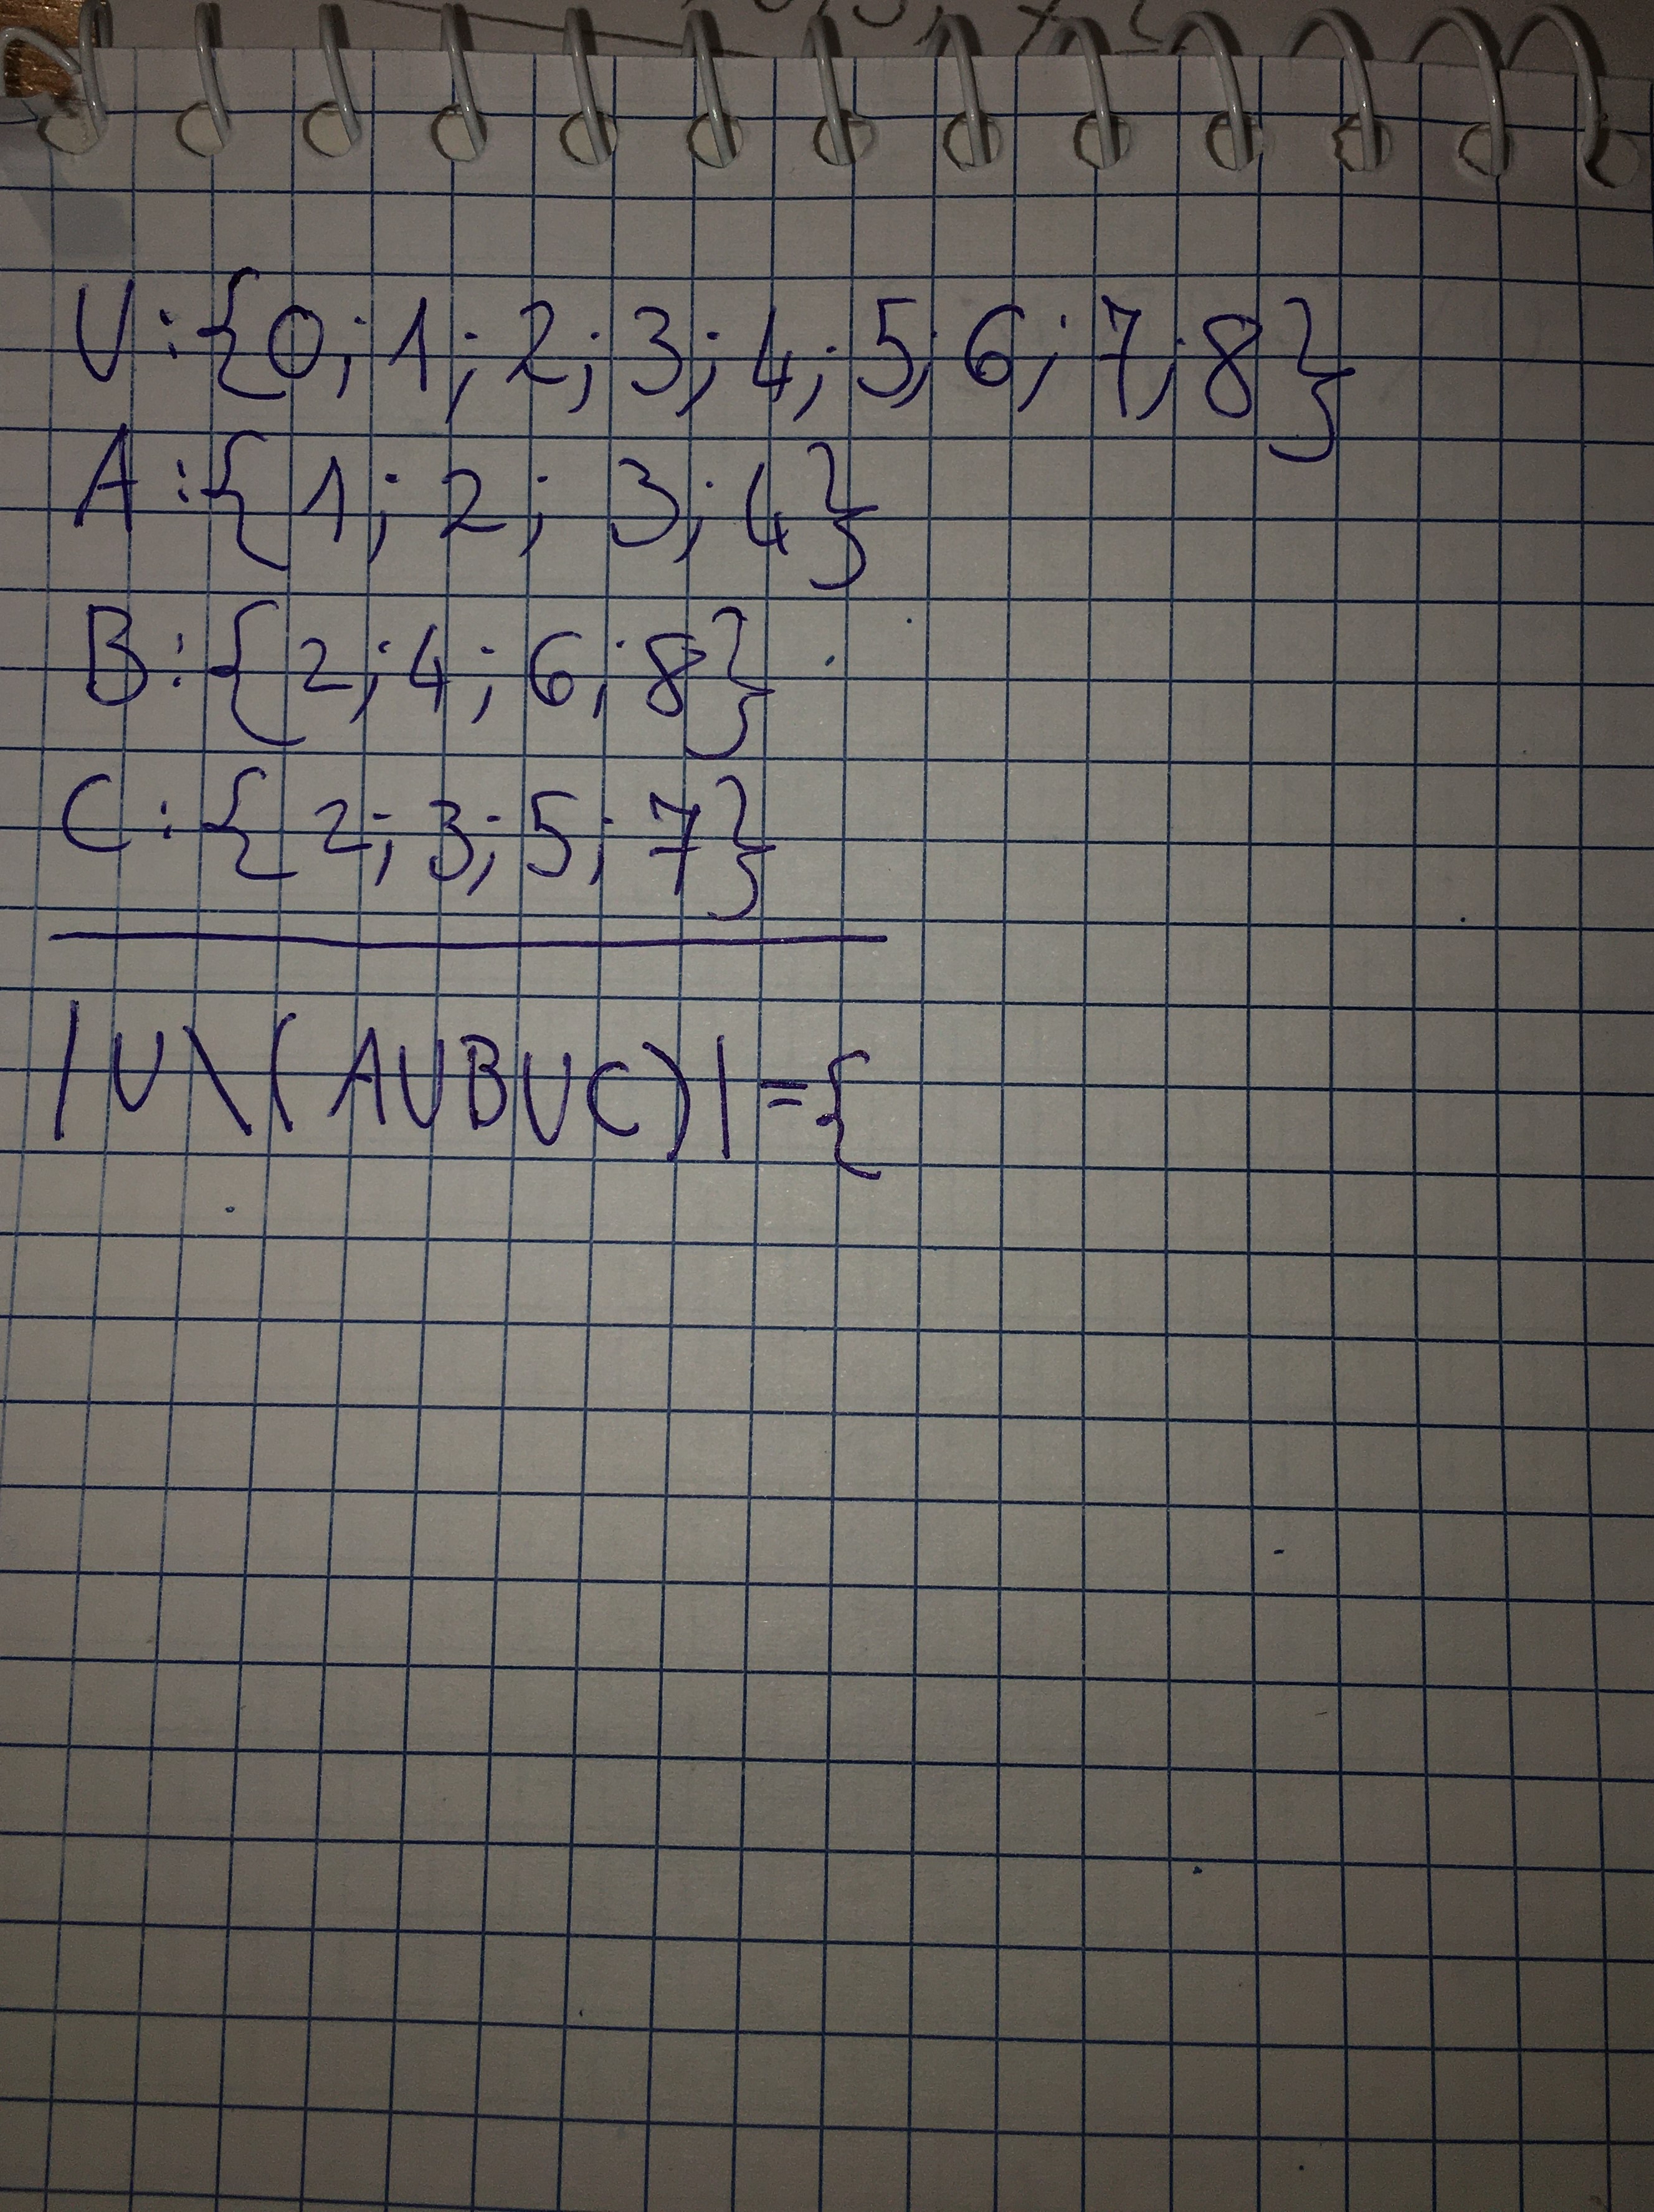 U:{0;1;2;3;4;5;6;7;8}
A:{1;2;3;4}
B:{2;4;6;8}
C:{2;3;5;7}
|U\(AUBUC)|={